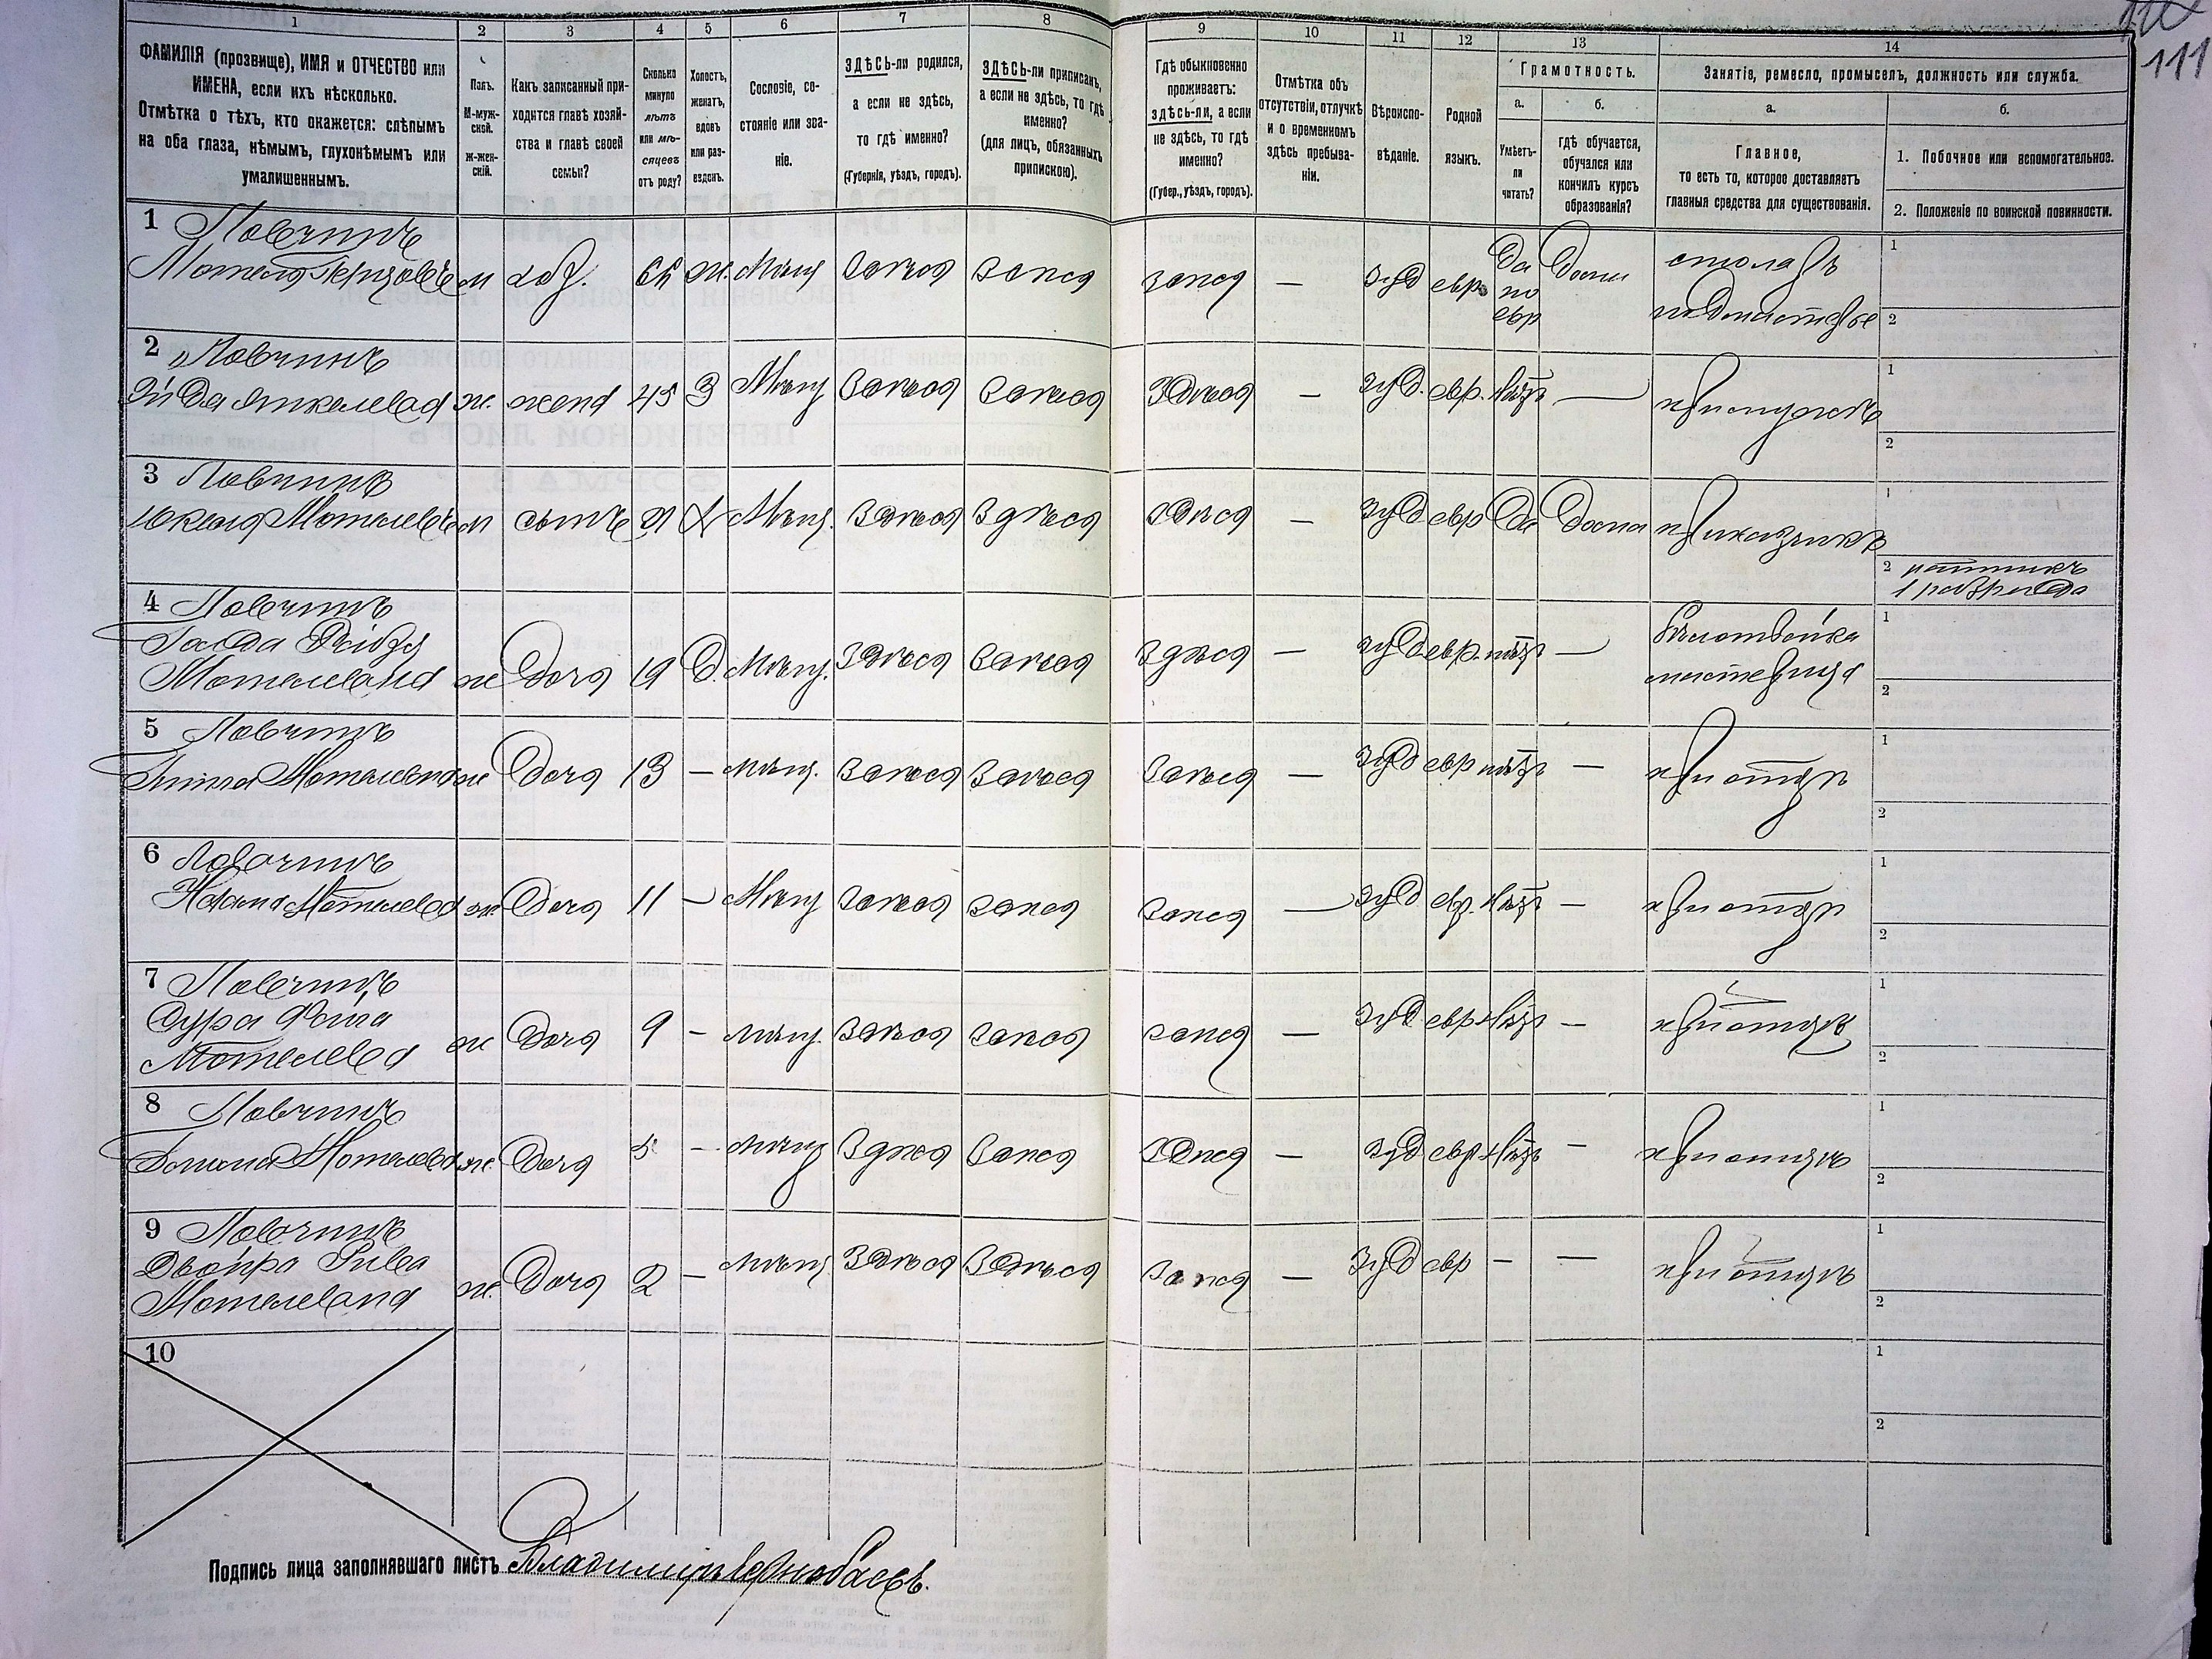 111
1 2 3 4 5 6 7 8 9 10 11 12 13 14
ФАМИЛІЯ (прозвище), ИМЯ и ОТЧЕСТВО или
ИМЕНА, если ихъ нѣсколько.
Отмѣтка о тѣхъ, кто окажется: слѣпымъ
на оба глаза, нѣмымъ, глухонѣмымъ или
умалишеннымъ.
Полъ.
М-муж-
ской.
Ж-жен-
скій.
Какъ записанный при-
ходится главѣ хозяй-
ства и главѣ своей
семьи?
Сколько
минуло
лѣтъ
или мѣ-
сяцевъ
отъ роду?
Холостъ,
женатъ,
вдовъ
или раз-
веденъ.
Сословіе, со-
стояніе или зва-
ніе.
ЗДѢСЬ-ли родился,
а если не здѣсь,
то гдѣ именно?
(Губернія, уѣздъ, городъ).
ЗДѢСЬ-ли приписанъ,
а если не здѣсь, то гдѣ
именно?
(для лицъ, обязанныхъ
припискою).
Гдѣ обыкновенно
проживаетъ:
здѣсь-ли, а если
не здѣсь, то гдѣ
именно?
(Губер., уѣздъ, городъ).
Отмѣтка объ
отсутствіи, отлучкѣ
и о временномъ
здѣсь пребыва-
ніи.
Вѣроиспо-
вѣданіе.
Родной
языкъ.
Грамотность.
а.
Умѣетъ-
ли
читать?
б.
гдѣ обучается,
обучался или
кончилъ курсъ
образованія?
Занятіе, ремесло, промыселъ, должность или служба.
а.
Главное,
то есть то, которое доставляетъ
главныя средства для существованія.
б.
1. Побочное или вспомогательное.
2. Положеніе по воинской повинности.
1 Ловчинъ
м хоз. ж. Мѣщ здѣся здѣся здѣся — іуд евр да по евр дома столяръ 1
2
2 Ловчинъ
ж. жена 45 З Мѣщ здѣся здѣся здѣся — іуд. евр. нѣтъ — при мужѣ 1
2
3 Ловчинъ
Мотелевъ м сынъ 21 Х Мѣщ. здѣся здѣся здѣся — іуд евр да дома приказчикъ 1
2 ратникъ
1 разряда
4 Ловчинъ
Мотелевна ж дочь 19 Д. Мѣщ. здѣся здѣся здѣся — іуд. евр. нѣтъ — мастерица 1
2
5 Ловчинъ
Мотелевна ж дочь 13 — мѣщ. здѣся здѣся здѣся — іуд евр нѣтъ — при отцѣ 1
2
6 Ловчинъ
Мотелева ж дочь 11 — Мѣщ здѣся здѣся здѣся — іуд евр. нѣтъ — при отцѣ 1
2
7 Ловчинъ
Сура
Мотелева ж дочь 9 — мѣщ. здѣся здѣся здѣся — іуд евр нѣтъ — при отцѣ 1
2
8 Ловчинъ
Мотелева ж. дочь 5 — мѣщ здѣся здѣся здѣся — іуд евр нѣтъ — при отцѣ 1
2
9 Ловчинъ
Двойра Рива
Мотелевна ж. дочь 2 — мѣщ здѣся здѣся здѣся — іуд евр — — при отцѣ 1
2
10 1
2
Подпись лица заполнявшаго листъ Владиміръ